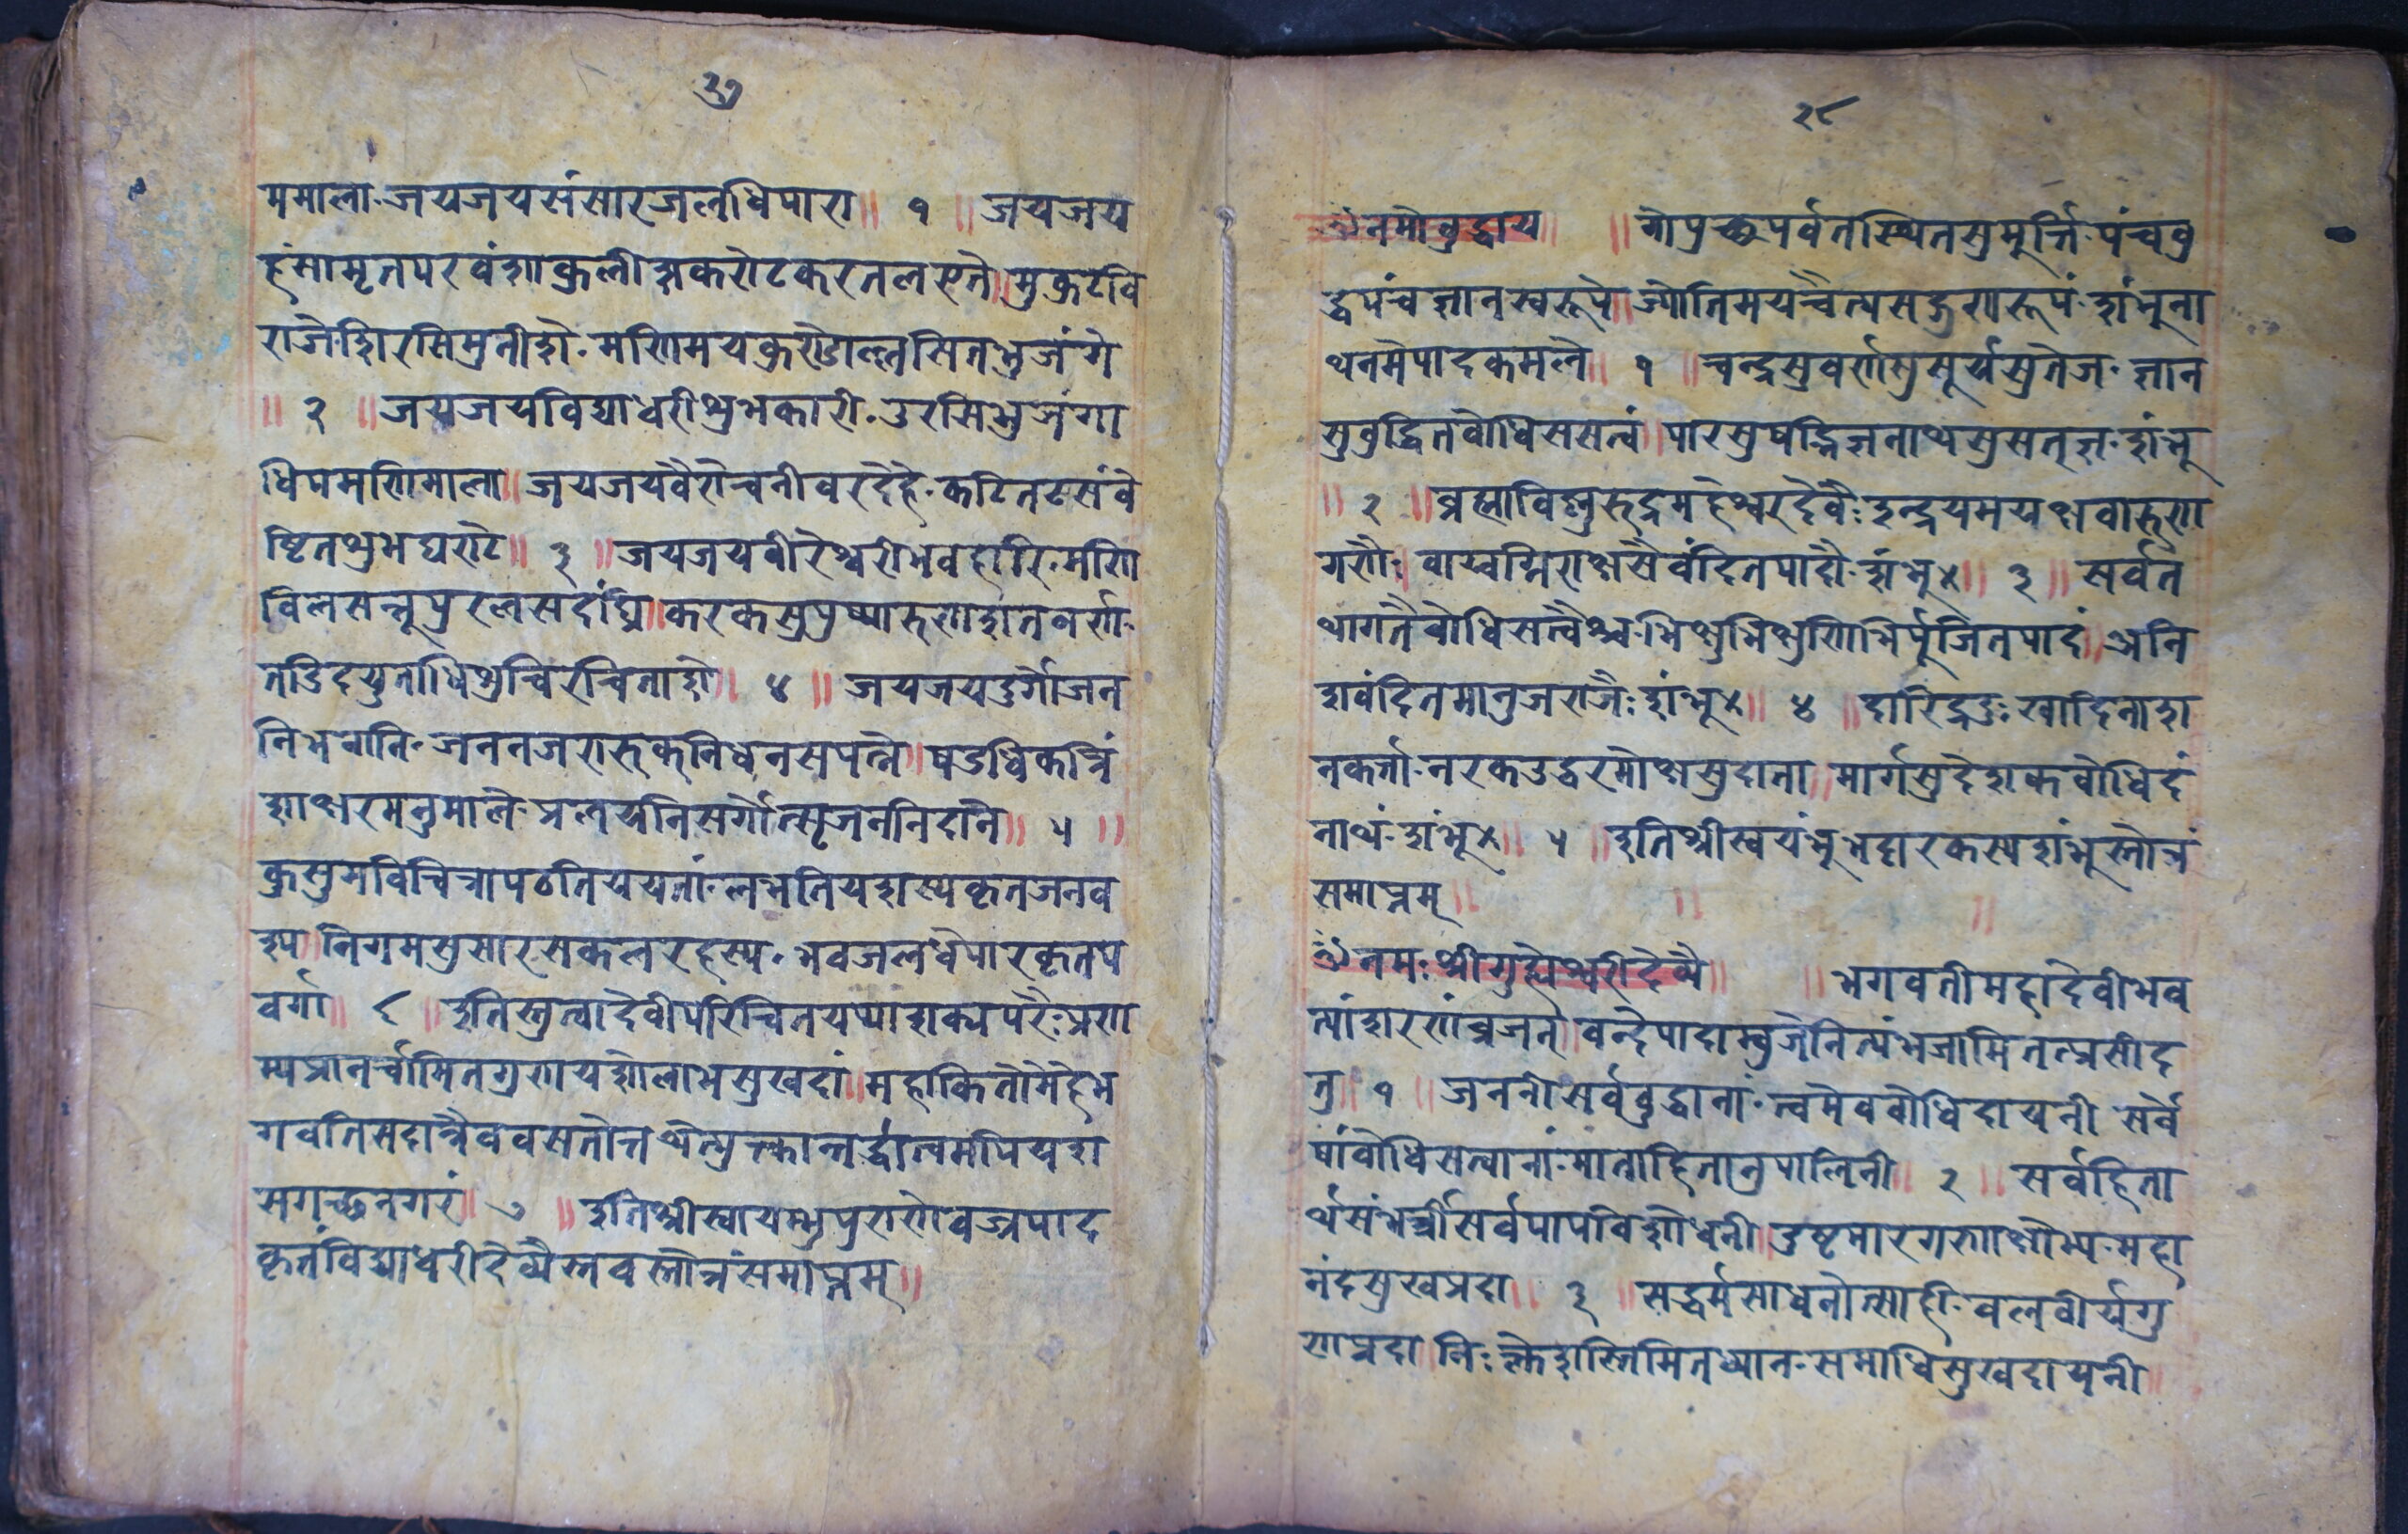 ३७
ममाला·जयजयसंसारजलधिपारा॥ १ ॥ जयजय
हंसामृतपरवंशाकुलीक्षकरोटकरतलस्तते॥मुकुटवि
राजेशिरसिमुनीशे·मणिमयकुण्डोल्लसितभुजंगे
॥ २ ॥ जयजयविद्याधरीशुभकारी·उरसिभुजंगा
धिपमणिमाला॥जयजयवैरोचनीवरदेहे·कटितटसंवे
ष्टितशुभघण्टे॥ ३ ॥ जयजयवीरेश्वरीभवहारि·मणि
विलसन्नूपुरलसदंघ्रि॥करकसुपुष्पारुणशतवर्ण·
तडिदयुताधिशुचिरुचिताशे॥ ४ ॥ जयजयदुर्गोजन
निभवानि·जननजरारुक्निधनसपत्ने॥षडधिकत्रिं
शाक्षरमनुमाले·प्रलयनिसर्गोत्सृजननिदाने॥ ५ ॥
कुसुमविचित्रापठतिययतां·लभतियशस्यकृतजनव
श्प॥निगमसुसारसकलरहस्य·भवजलधेपारकृतप
वर्गा॥ ६ ॥ इतिस्तुत्वादेवीपरिचितयप्याशक्यपरैःप्रण
म्यप्रानर्चामितगुणयशोलाभसुखदां॥महाकितोमेहेभ
गवतिसदात्रैववसतोत्तथेत्युक्तान्तर्द्धात्वमपियश
सगच्छनगरं॥ ७ ॥ इतिश्रीस्वायम्भुपुराणेवज्रपाद
कृतंविद्याधरीदेव्यैस्तवस्तोत्रंसमाप्तम्॥
३८
ॐनमोबुद्धाय॥ ॥ गोपुच्छपर्वतस्थितसुमूर्त्ति·पंचबु
द्धपंचज्ञानस्वरूपे॥ज्योतिमयचैत्यसद्गुणरूपं·शंभूना
थनमेपादकमले॥ १ ॥ चन्द्रसुवर्णसुसूर्यसुतेज·ज्ञान
सुबुद्धितबोधिससत्वं॥पारसुषद्भिजनाथसुसतृज·शंभू
॥ २ ॥ ब्रह्माविष्णुरुद्रमहेश्वरदेवैःइन्द्रयमयक्षवारुण
गणैः॥वाय्वग्निराक्षसैवंदितपादौ·शंभू×॥ ३ ॥ सर्वत
थागतैबोधिसत्वैश्च·भिक्षुभिक्षुणिभिर्पूजितपादं॥अनि
शवंदितमानुजराजैः·शंभू×॥ ४ ॥ दारिद्रदुःखादिनाश
नकर्ता·नरकउद्धरमोक्षसुदाता॥मार्गसुदेशकबोधिदं
नाथं·शंभू×॥ ५ ॥ इतिश्रीस्वयंभूभट्टारकस्यशंभूस्तोत्रं
समाप्तम्॥ ॥ ॥
ॐनमःश्रीगुह्येश्वरीदेव्यै॥ ॥ भगवतीमहादेवीभव
त्यांशरणंव्रजन्॥वन्देपादाम्बुजेनित्यंभजामितत्प्रसीद
तु॥ १ ॥ जननीसर्वबुद्धानां·त्वमेवबोधिदायनी॥सर्वे
षांबोधिसत्वानां·माताहितानुपालिनी॥ २ ॥ सर्वहिता
र्थसंभर्त्रीसर्वपापविशोधनी॥दुष्टमारगणाक्षोभ्य·महा
नंदसुखप्रदा॥ ३ ॥ सद्धर्मसाधनोत्साही·वलवीर्यगु
णप्रदा॥निःक्लेशस्तिमितध्यान·समाधिसुखदायनी॥